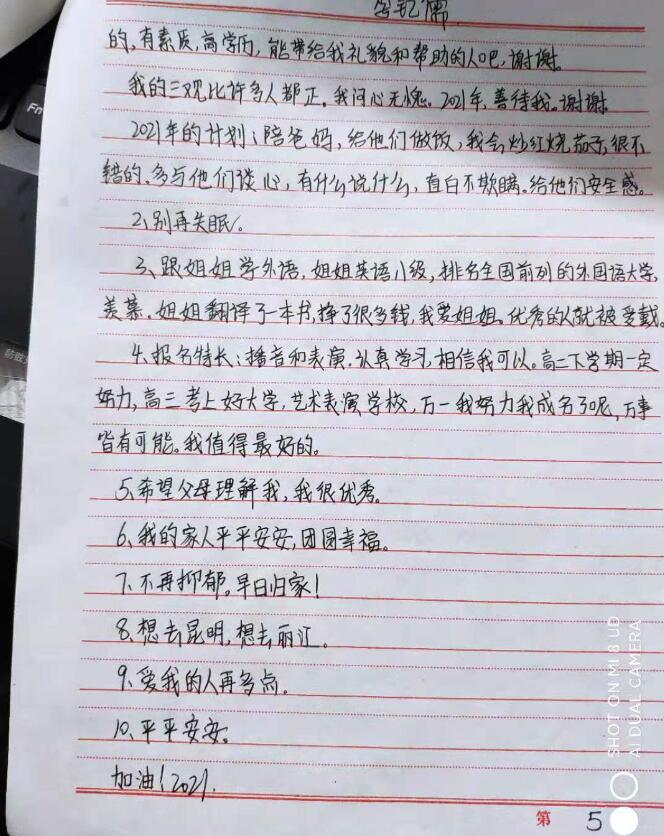 的,有素质,高学历,能带给我礼貌和帮助的人吧,谢谢。
我的三观比许多人都正。我问心无愧。2021年,善待我。谢谢
2021年的计划:陪爸妈,给他们做饭,我会炒红烧茄子,很不
错的.多与他们谈心,有什么说什么,直白不欺瞒。给他们安全感。
2、别再失眠。
3、跟姐姐学外语,姐姐英语八级,排名全国前列的外国语大学,
羡慕.姐姐翻译了一本书,挣了很多钱,我爱姐姐。优秀的人就被爱戴。
4、报名特长:播音和表演.认真学习,相信我可以。高二下学期一定
努力,高三考上好大学,艺术表演学校,万一我努力我成名了呢,万事
皆有可能。我值得最好的。
5、希望父母理解我,我很优秀。
6、我的家人平平安安,团圆幸福。
7、不再抑郁。早日归家!
8、想去昆明,想去丽江。
9、爱我的人再多点。
10、平平安安。
加油!2021.
第 5
SHOT ON MI 8 UD
AI DUAL CAMERA
Fn